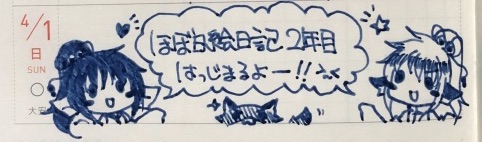 4/1
日
SUN
大安
ほぼ日絵日記2年目
はっじまるよー!!